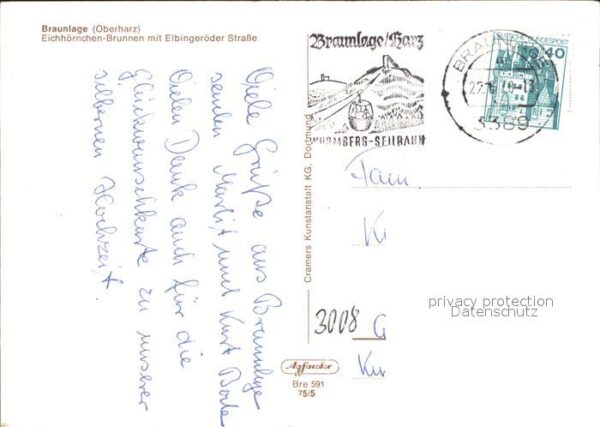 Braunlage (Oberharz)
Eichhörnchen-Brunnen mit Elbingeröder Straße
Viele Grüße aus Braunlage
senden Marlis und Kurt Bode
Vielen Dank auch für die
Glückwunschkarte zu unserer
silbernen Hochzeit.
Cramers Kunstanstalt KG. Dortmund
Agfacolor
Bre 591
75/5
Braunlage/Harz
WURMBERG-SEILBAHN
DEUTSCHE BUNDESPOST
40
3389
Fam
Ki
3008 G
privacy protection
Datenschutz